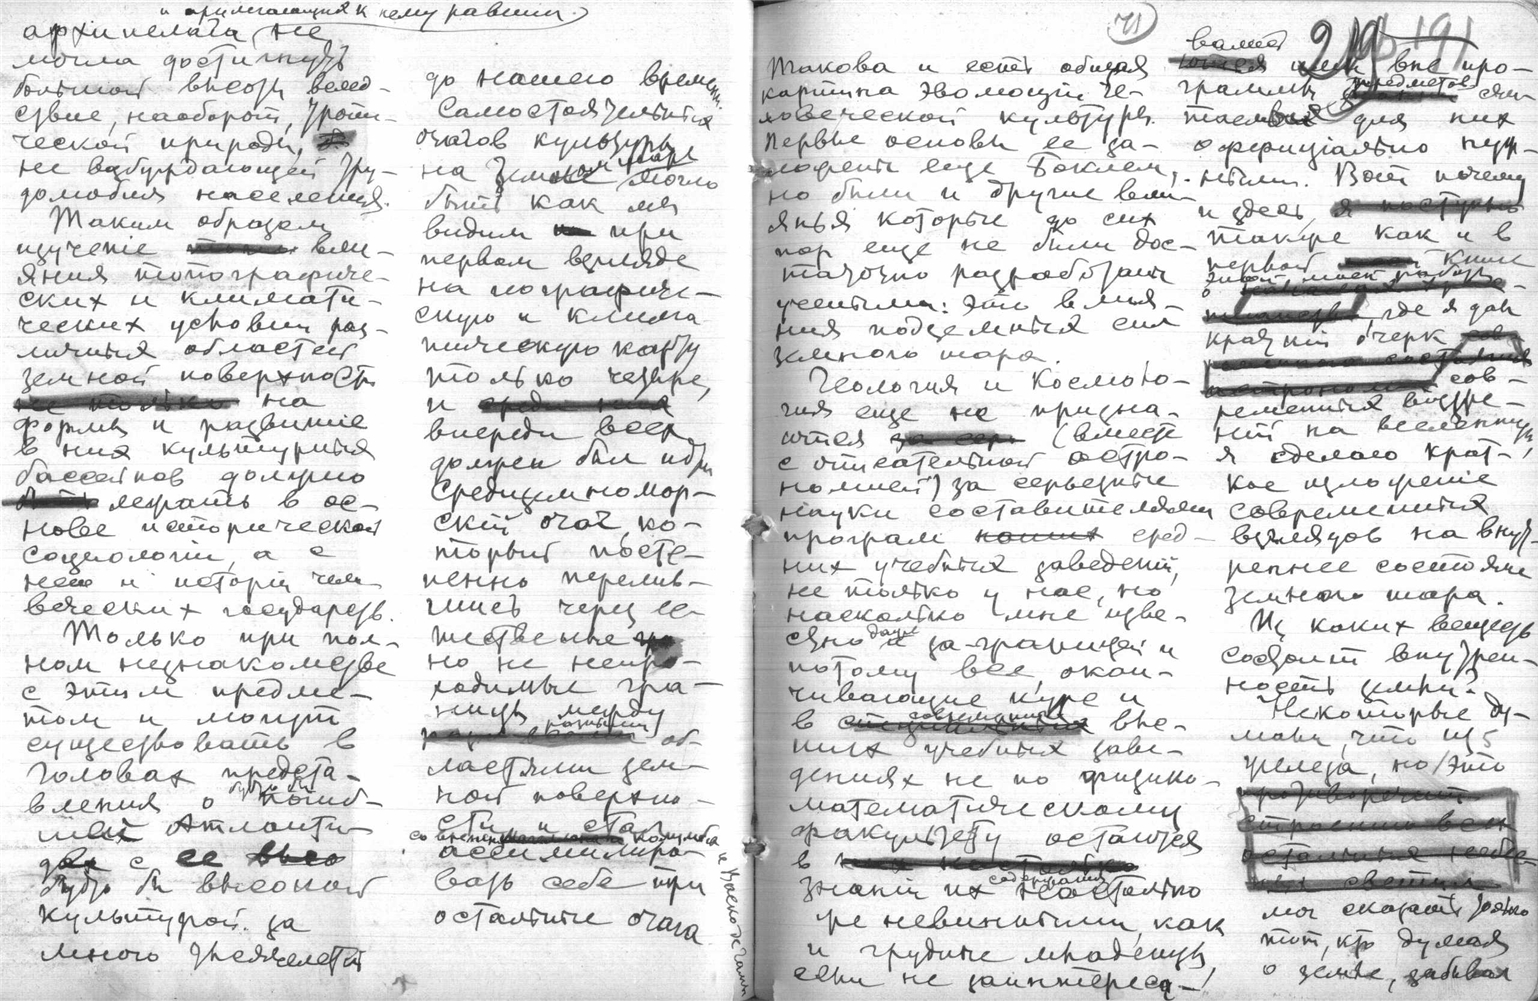 и прилегающих к нему равнин.
архипелага, не
могла достигнуть
большой высоты вслед-
ствие, наоборот, тропи-
ческой природы,
не возбуждающей тру-
долюбия населения.
Таким образом
изучение вли-
яния топографиче-
ских и климати-
ческих условий раз-
личных областей
земной поверхности
не только на
формы и развитие
в них культурных
бассейнов должно
быть лежать в ос-
нове исторической
социологии, а с
нею и истории чело-
веческих государств.
Только при пол-
ном незнакомстве
с этим предме-
том и могут
существовать в
головах предста-
вления о будто бы погиб-
шей Атлантиде
с ее
будто бы высокой
культурой за
много тысячелетий
до нашего времени.
Самостоятельных
очагов культуры
на земном шаре могло
быть как мы
видим при
первом взгляде
на географиче-
скую и клима-
тическую карту
только четыре,
и среди них
впереди всех
должен был идти
Средиземномор-
ский очаг, ко-
торый посте-
пенно перелив-
шись через ес-
тественные
но не непро-
ходимые гра-
ницы между
разными об-
ластями зем-
ной поверхно-
сти и стал
со времени Колумба и Васко-де-Гамы
ассимилиро-
вать себе три
остальные очага
71
Такова и есть общая
картина эволюции че-
ловеческой культуры.
Первые основы ее за-
ложены еще Боклем,
но были и другие вли-
янья которые до сих
пор еще не были дос-
таточно разработаны
учеными: это влия-
ния подземных сил
земного шара.
Геология и Космоло-
гия еще не призна-
ются (вместе
с описательной астро-
номией) за серьезные
науки составителями
програм наших сред-
них учебных заведений,
не только у нас, но
насколько мне изве-
стно даже и за-границей и
потому все, окан-
чивающие курс и
в современных выс-
ших учебных заве-
дениях не по физико-
математическому
факультету остаются
в
знании их содержания настолько
же невинными, как
и грудные младенцы,
если не заинтересо-
191
вались ими вне про-
граммы предметов счи-
таемых для них
официально нуж-
ными. Вот почему
и здесь, я поступаю
также как и в
первой книге
этой моей работы,
где я дал
краткий очерк
сов-
ременных воззре-
ний на вселенную,
я сделаю крат-
кое изложение
современных
взглядов на внут-
реннее состояние
земного шара.
Из каких веществ
состоит внутрен-
ность земли?
Некоторые ду-
мали, что из
железа, но это
мог сказать только
тот, кто думая
о земле, забывал